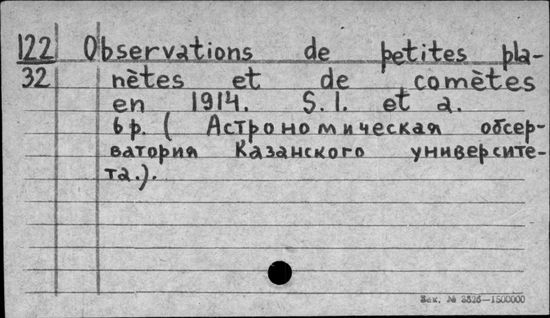 122 Observations de petites pla-
32 nètes et de comètes
en 1914. S. l. et a.
6 p. ( Астрономическая обсер-
ватория Казанского университе-
та.).
Зак. № 3525—1500000